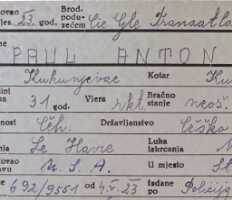 23. god. Brod. podu- zećem Cie Gle Transatla
PAUL ANTON
Kukunjevac Kotar Ku
31 god. Vjera rkt. Bračno stanje neož.
Čeh. Državljanstvo Češko
Le Havre Luka iskrcanja N
U.S.A. U mjesto St
692/9551 od 4.V.23 Isdane po Policija